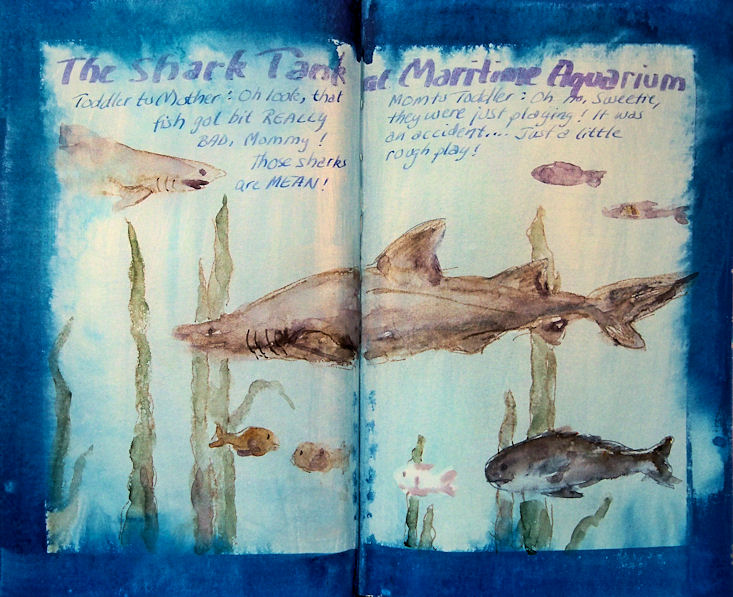 The Shark Tank at Maritime Aquarium
Toddler to Mother: Oh look, that
fish got bit REALLY
BAD, Mommy!
Those sharks
are MEAN!
Mom to Toddler: Oh no, Sweetie,
they were just playing! It was
an accident.... Just a little
rough play!